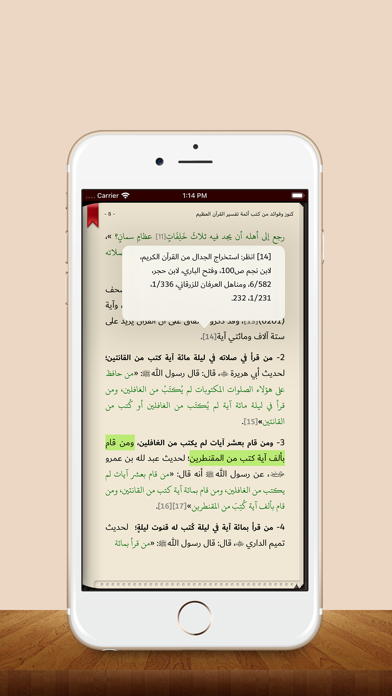 .... Carrier 1:14 PM
كنوز وفوائد من كتب أئمة تفسير القرآن العظيم - 8 -
رجع إلى أهله أن يجد فيه ثلاثَ خَلِفَاتٍ[11] عظامٍ سمانٍ؟ »،
صلاته
[14] انظر: استخراج الجدال من القرآن الكريم،
لابن نجم ص100، وفتح الباري، لابن حجر،
6/582، ومناهل العرفان للزرقاني، 1/336،
1/231، 232.
صحف
وآية
ستة آلاف ومائتي آية[14].
2- من قرأ في صلاته في ليلة مائة آية كتب من القانتين؛
لحديث أبي هريرة ، قال: قال رسول الله ﷺ: «من حافظ
على هؤلاء الصلوات المكتوبات لم يُكتَبْ من الغافلين، ومن
قرأ في ليلة مائة آية لم يُكتَب من الغافلين أو كُتب من
القانتين»[15].
3- ومن قام بعشر آيات لم يكتب من الغافلين، ومن قام
بألف آية كتب من المقنطرين؛ لحديث عبد لله بن عمرو
، عن رسول الله ﷺ أنه قال: «من قام بعشر آيات لم
يكتب من الغافلين، ومن قام بمائة آية كتب من القانتين، ومن
قام بألف آية كُتِبَ من المقنطرين»[16][17].
4- من قرأ بمائة آية في ليلة كُتب له قنوت ليلةٍ؛ لحديث
تميم الداري ، قال: قال رسول الله ﷺ: «من قرأ بمائة